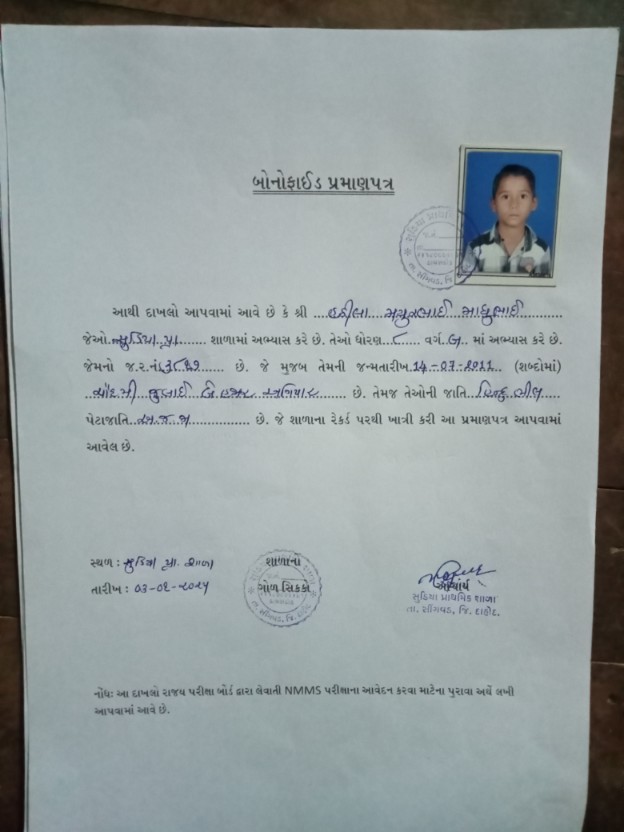 બોનોફાઈડ પ્રમાણપત્ર
આથી દાખલો આપવામાં આવે છે કે શ્રી ... મયુરભાઈ માધુભાઈ
જેઓ સુડિયા પ્રા શાળામાં અભ્યાસ કરે છે. તેઓ ધોરણ ૮ વર્ગ બ માં અભ્યાસ કરે છે.
જેમનો જ.ર.નં છે. જે મુજબ તેમની જન્મતારીખ 14-07-2011 (શબ્દોમાં)
ચૌદમી જુલાઈ બે હજાર અગિયાર છે. તેમજ તેઓની જાતિ હિન્દુ ભીલ
પેટાજાતિ અ.જ.જા છે. જે શાળાના રેકર્ડ પરથી ખાત્રી કરી આ પ્રમાણપત્ર આપવામાં
આવેલ છે.
સ્થળ : સુડિયા પ્રા. શાળા
શાળાના
તારીખ : 03-0૬-૨૦૨૫
ગોળ સિક્કો
આચાર્ય
સુડિયા પ્રાથમિક શાળા
તા. સીંગવડ, જિ. દાહોદ.
નોંધઃ આ દાખલો રાજ્ય પરીક્ષા બોર્ડ દ્વારા લેવાતી NMMS પરીક્ષાના આવેદન કરવા માટેના પુરાવા અર્થે લખી
આપવામાં આવે છે.